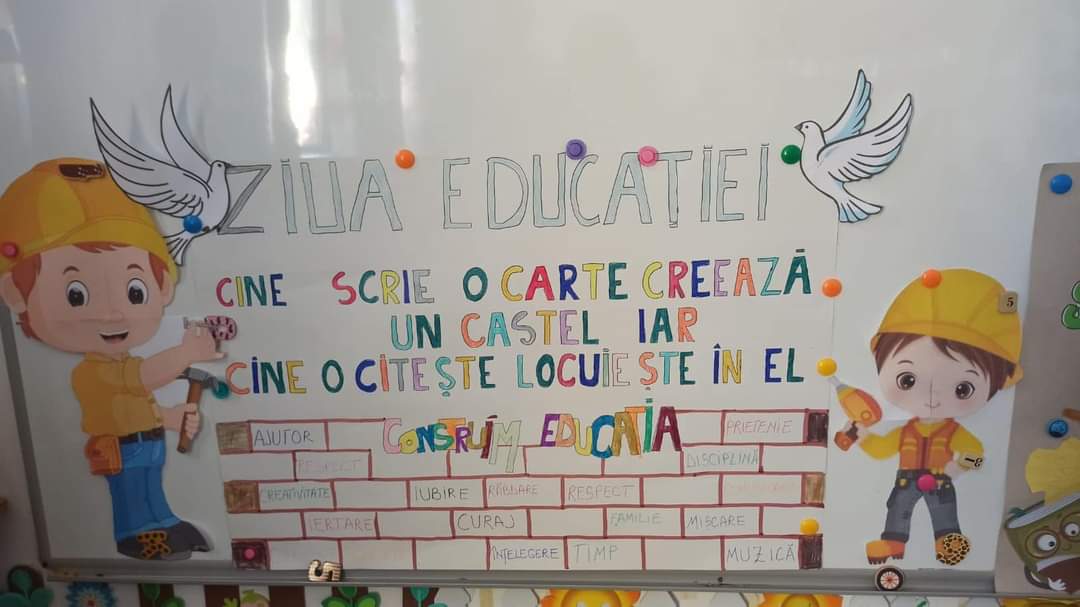 ZIUA EDUCAȚIEI
CINE SCRIE O CARTE CREEAZĂ
UN CASTEL IAR
CINE O CITEȘTE LOCUIEȘTE ÎN EL
CONSTRUIM EDUCAȚIA
AJUTOR PRIETENIE
RESPECT DISCIPLINĂ
CREATIVITATE IUBIRE RĂBDARE RESPECT
IERTARE CURAJ FAMILIE MISCARE
ÎNȚELEGERE TIMP MUZICĂ
5
5